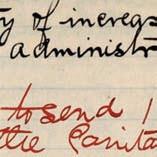 of increas
administr
to send
the Sanita